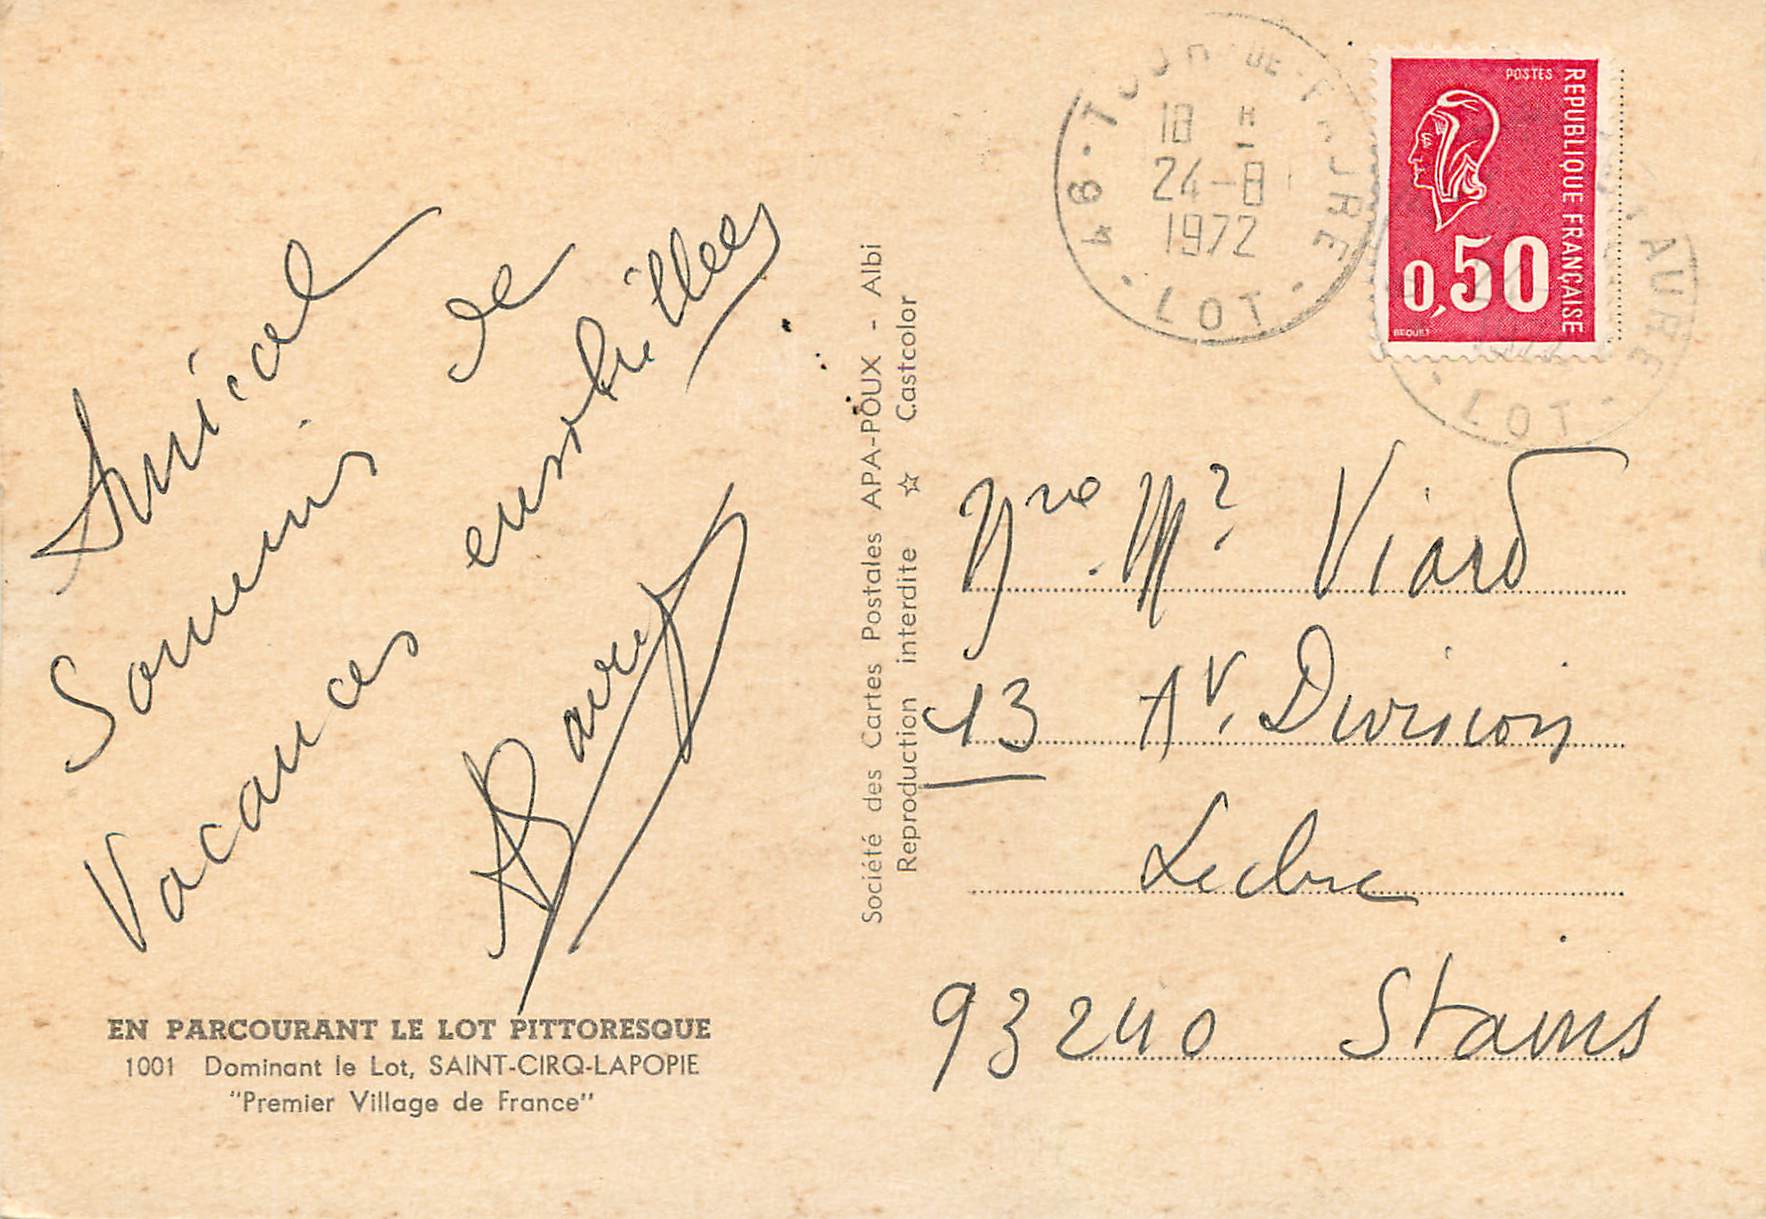 Amical
Souvenir de
Vacances ensoleillées
EN PARCOURANT LE LOT PITTORESQUE
1001 Dominant le Lot, SAINT-CIRQ-LAPOPIE
"Premier Village de France"
Société des Cartes Postales APA-POUX - Albi
Reproduction interdite ☆ Castcolor
46 - TOUR-DE-FAURE
18 H
24-8
1972
LOT
POSTES
REPUBLIQUE FRANÇAISE
0,50
BEQUET
AURE
LOT
Mr Viard
13 Av. Division
Leclerc
93240 Stains